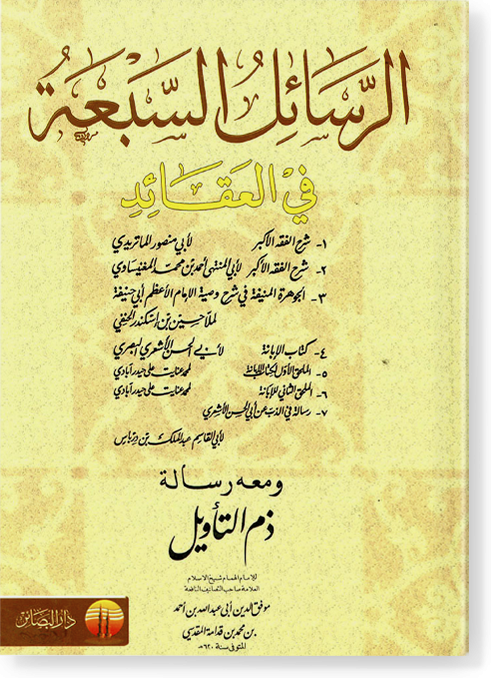 الرَّسَائِلُ السَّبْعَةُ
في العَقَائِدِ
١- شرح الفقه الأكبر لأبي منصور الماتريدي
٢- شرح الفقه الأكبر لأبي المنتهى أحمد بن محمد المغنيساوي
٣- الجوهرة المنيفة في شرح وصية الامام الأعظم أبي حنيفة
لملا حسين بن إسكندر الحنفي
٤- كتاب الإبانة لأبي الحسن الأشعري البصري
٥- الملحق الأول لكتاب الإبانة لمحمد عنايت علي حيدرآبادي
٦- الملحق الثاني للإبانة لمحمد عنايت علي حيدرآبادي
٧- رسالة في الذب عن أبي الحسن الأشعري
لأبي القاسم عبد الملك بن درباس
ومعه رسالة
ذم التأويل
للإمام الهمام شيخ الاسلام
العلامة صاحب التصانيف النافعة
موفق الدين أبي عبد الله بن أحمد
بن محمد بن قدامة المقدسي
المتوفى سنة ٦٢٠هـ
دار البصائر